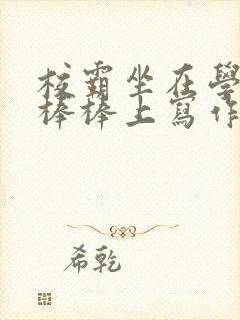 校霸坐在學
棒棒上寫作
希乾